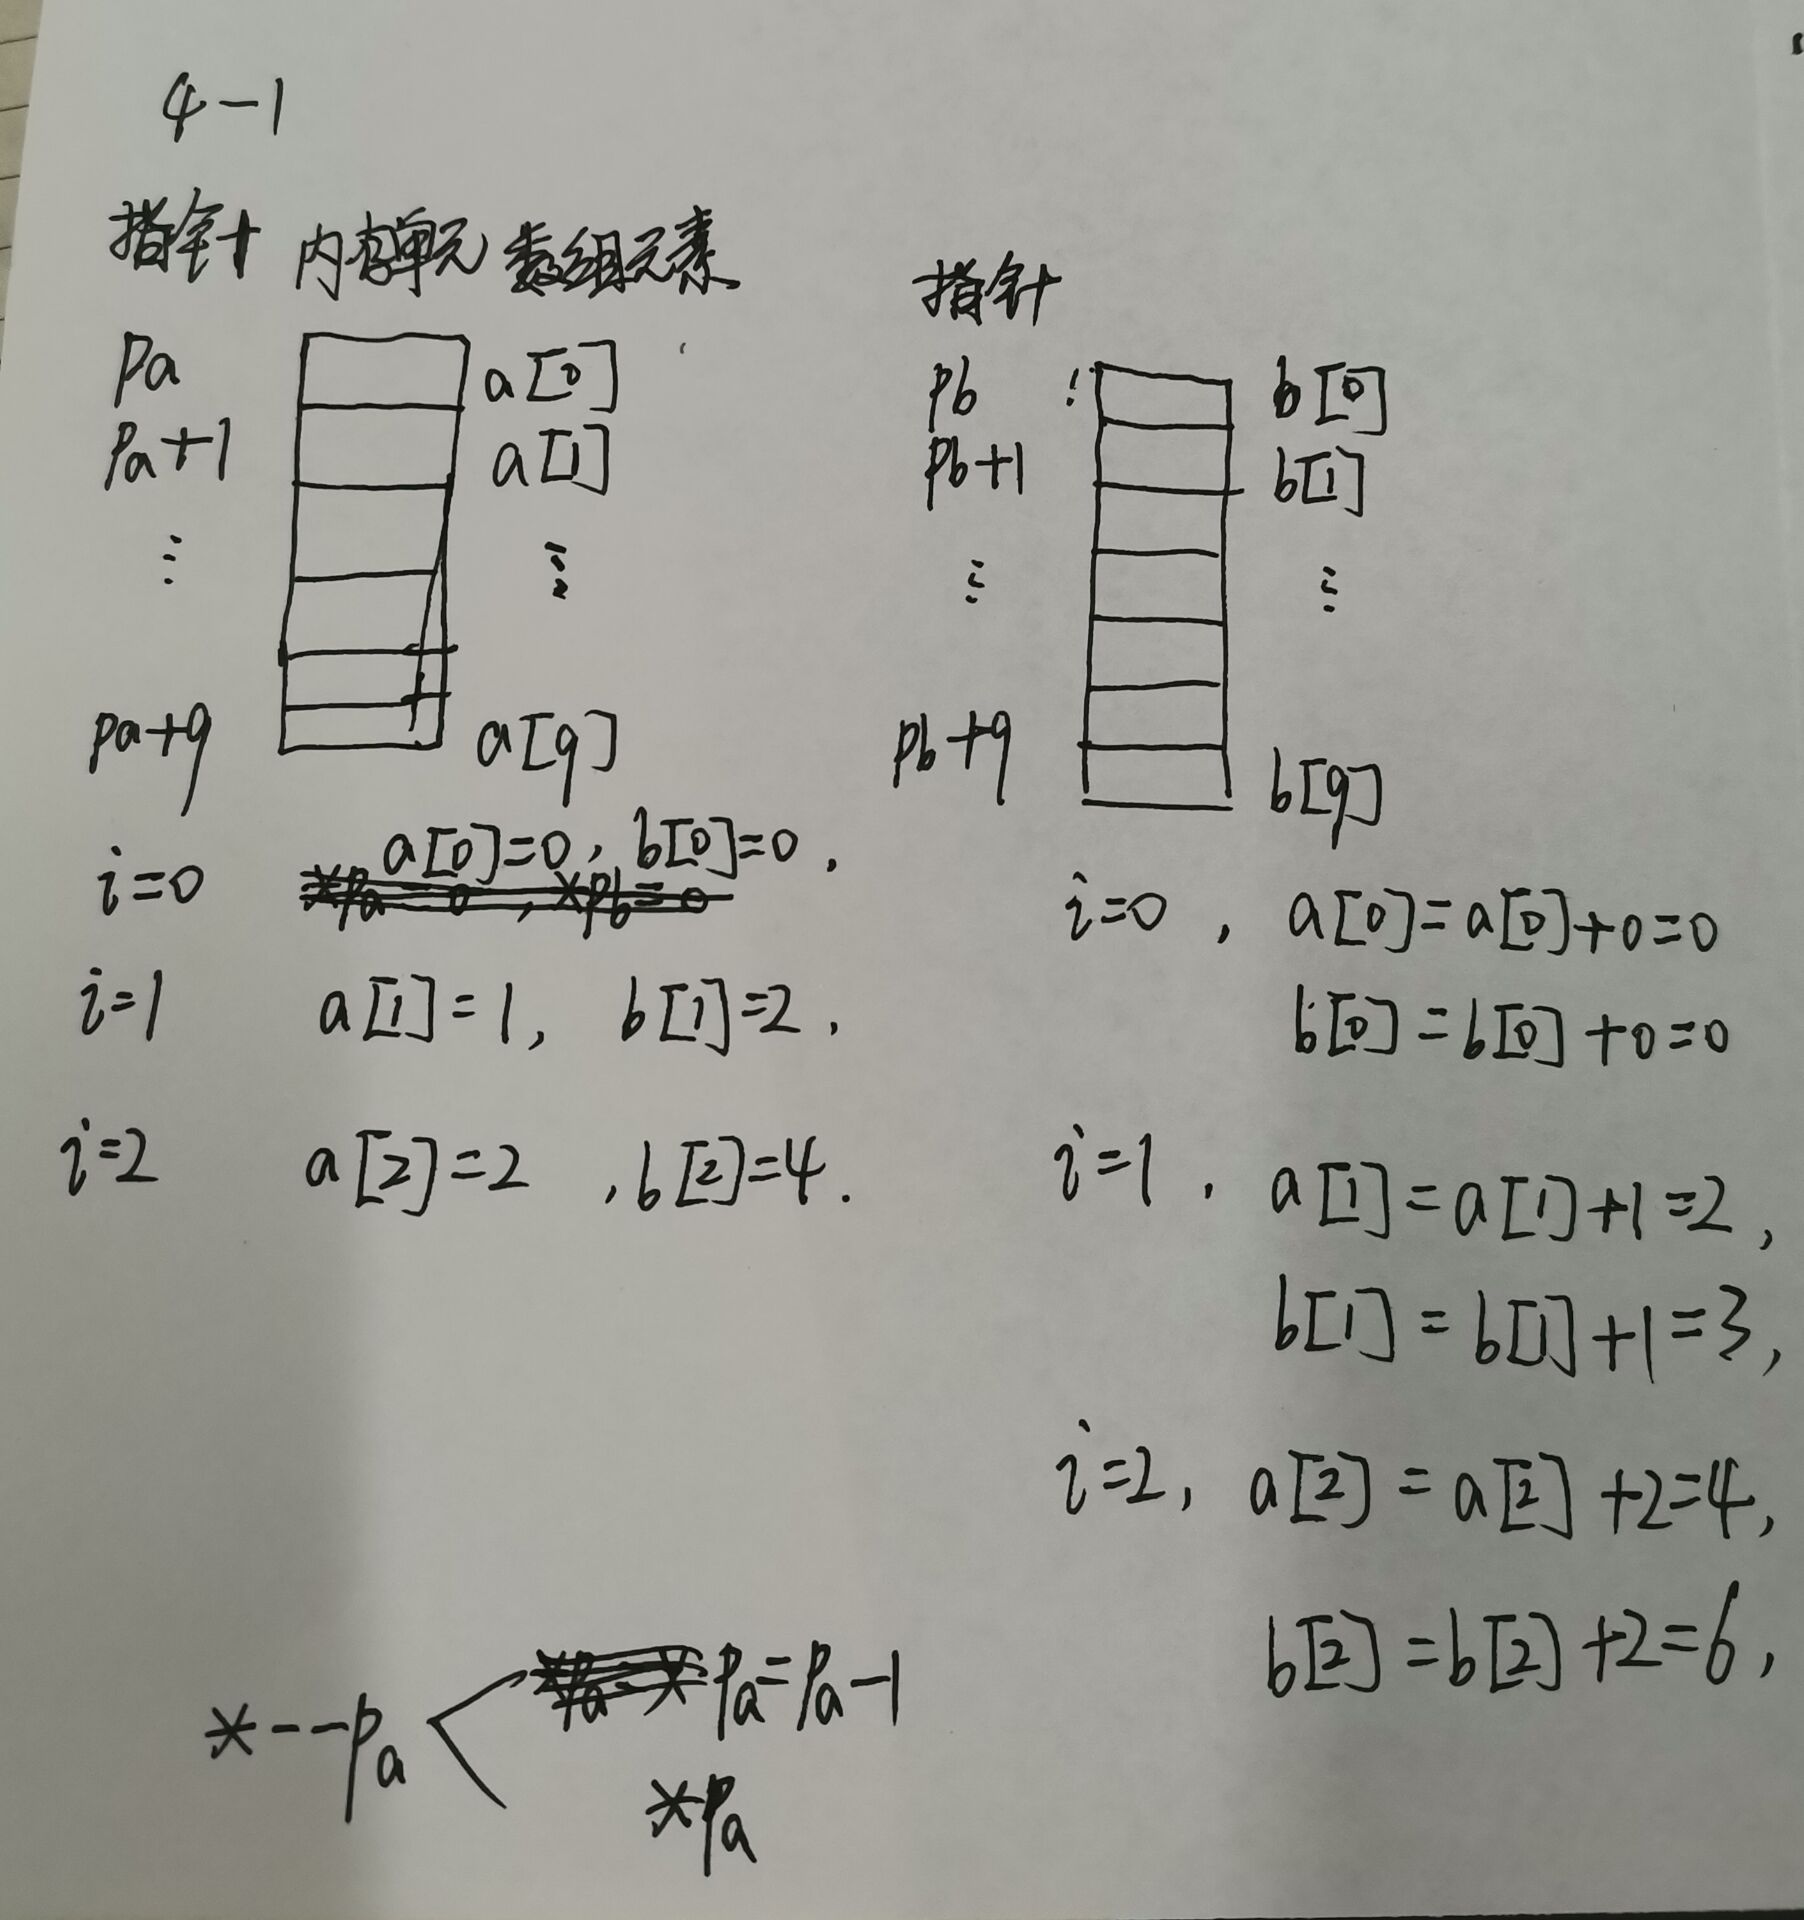 4-1
指针 内存单元 数组元素
pa a[0]
pa+1 a[1]
⋮ ⋮
pa+9 a[9]
指针
pb b[0]
pb+1 b[1]
⋮ ⋮
pb+9 b[9]
i=0 a[0]=0, b[0]=0,
i=1 a[1]=1, b[1]=2,
i=2 a[2]=2, b[2]=4.
i=0, a[0]=a[0]+0=0
b[0]=b[0]+0=0
i=1, a[1]=a[1]+1=2,
b[1]=b[1]+1=3,
i=2, a[2]=a[2]+2=4,
b[2]=b[2]+2=6,
*--pa
pa=pa-1
*pa